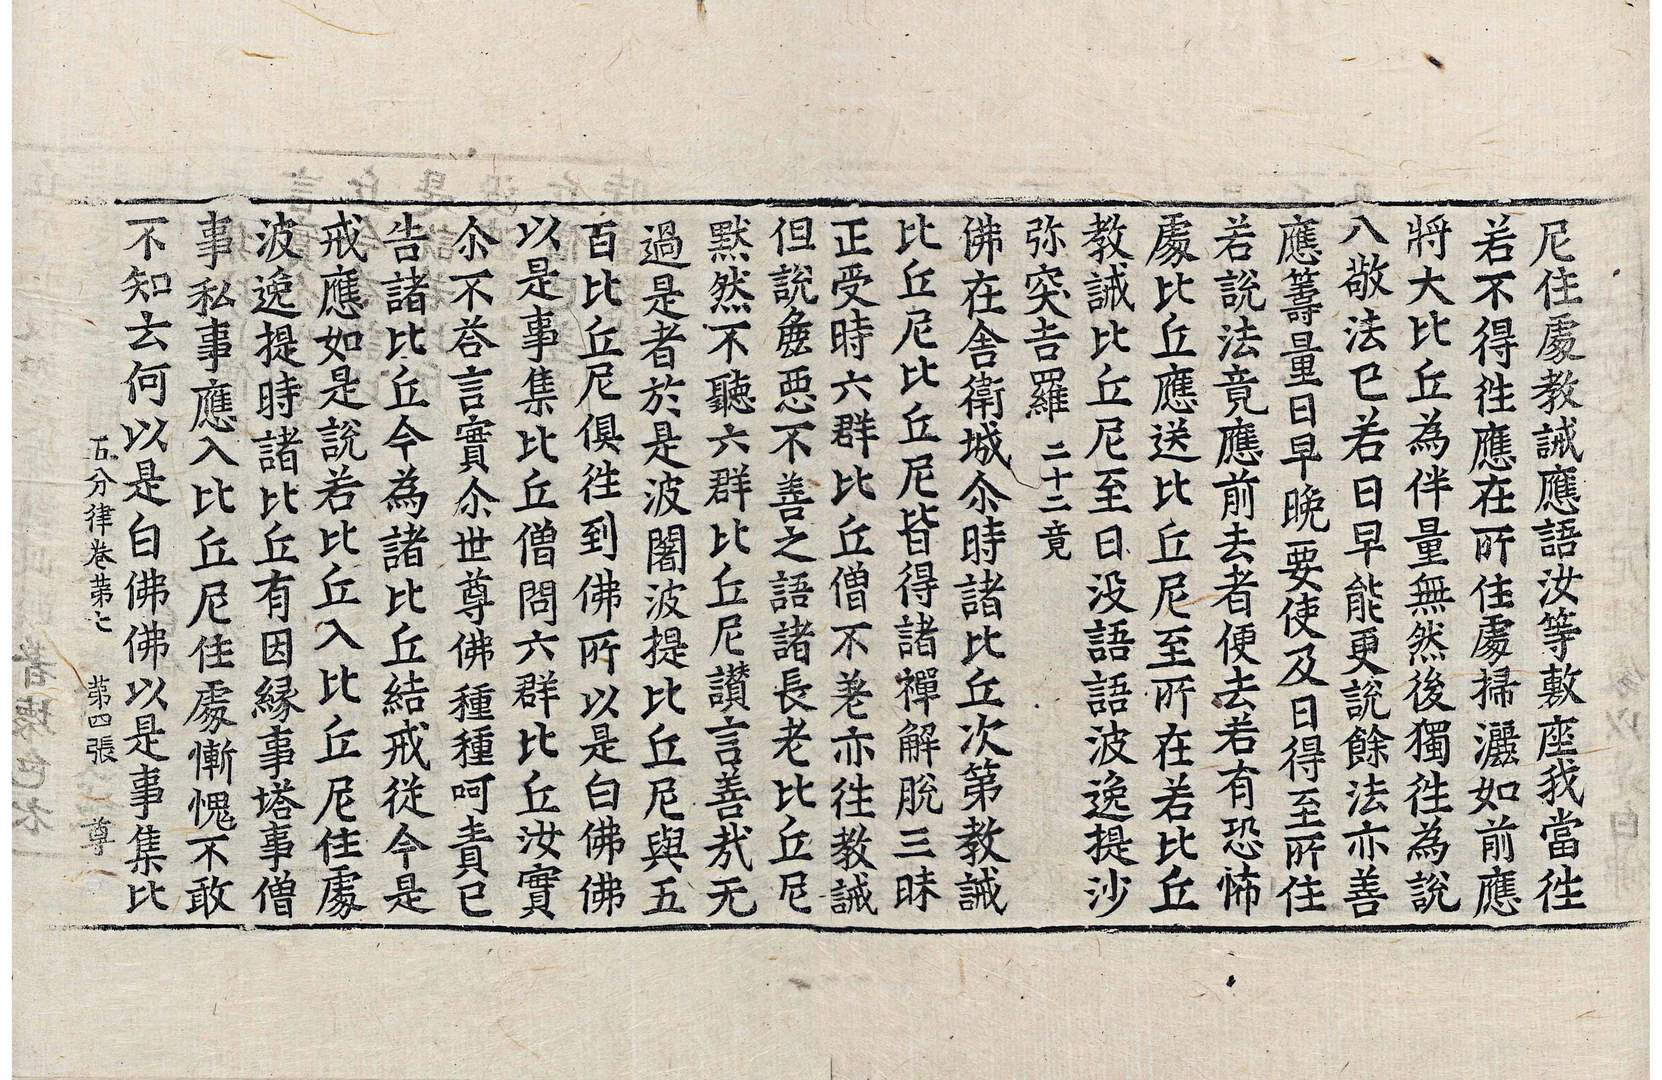 尼住處教誡應語汝等敷座我當往
若不得往應在所住處掃灑如前應
將大比丘為伴量無然後獨往為說
八敬法已若日早能更說餘法亦善
應籌量日早晚要使及日得至所住
若說法竟應前去者便去若有恐怖
處比丘應送比丘尼至所在若比丘
教誡比丘尼至日没語語波逸提沙
弥突吉羅 二十二竟
佛在舍衛城尒時諸比丘次第教誡
比丘尼比丘尼皆得諸禪解脫三昧
正受時六群比丘僧不差亦往教誡
但說麁惡不善之語諸長老比丘尼
默然不聽六群比丘尼讃言善㢤无
過是者於是波闍波提比丘尼與五
百比丘尼俱往到佛所以是白佛佛
以是事集比丘僧問六群比丘汝實
尒不荅言實尒世尊佛種種呵責已
告諸比丘今為諸比丘結戒從今是
戒應如是說若比丘入比丘尼住處
波逸提時諸比丘有因縁事塔事僧
事私事應入比丘尼住處慚愧不敢
不知云何以是白佛佛以是事集比
五分律卷苐七 苐四張 尊